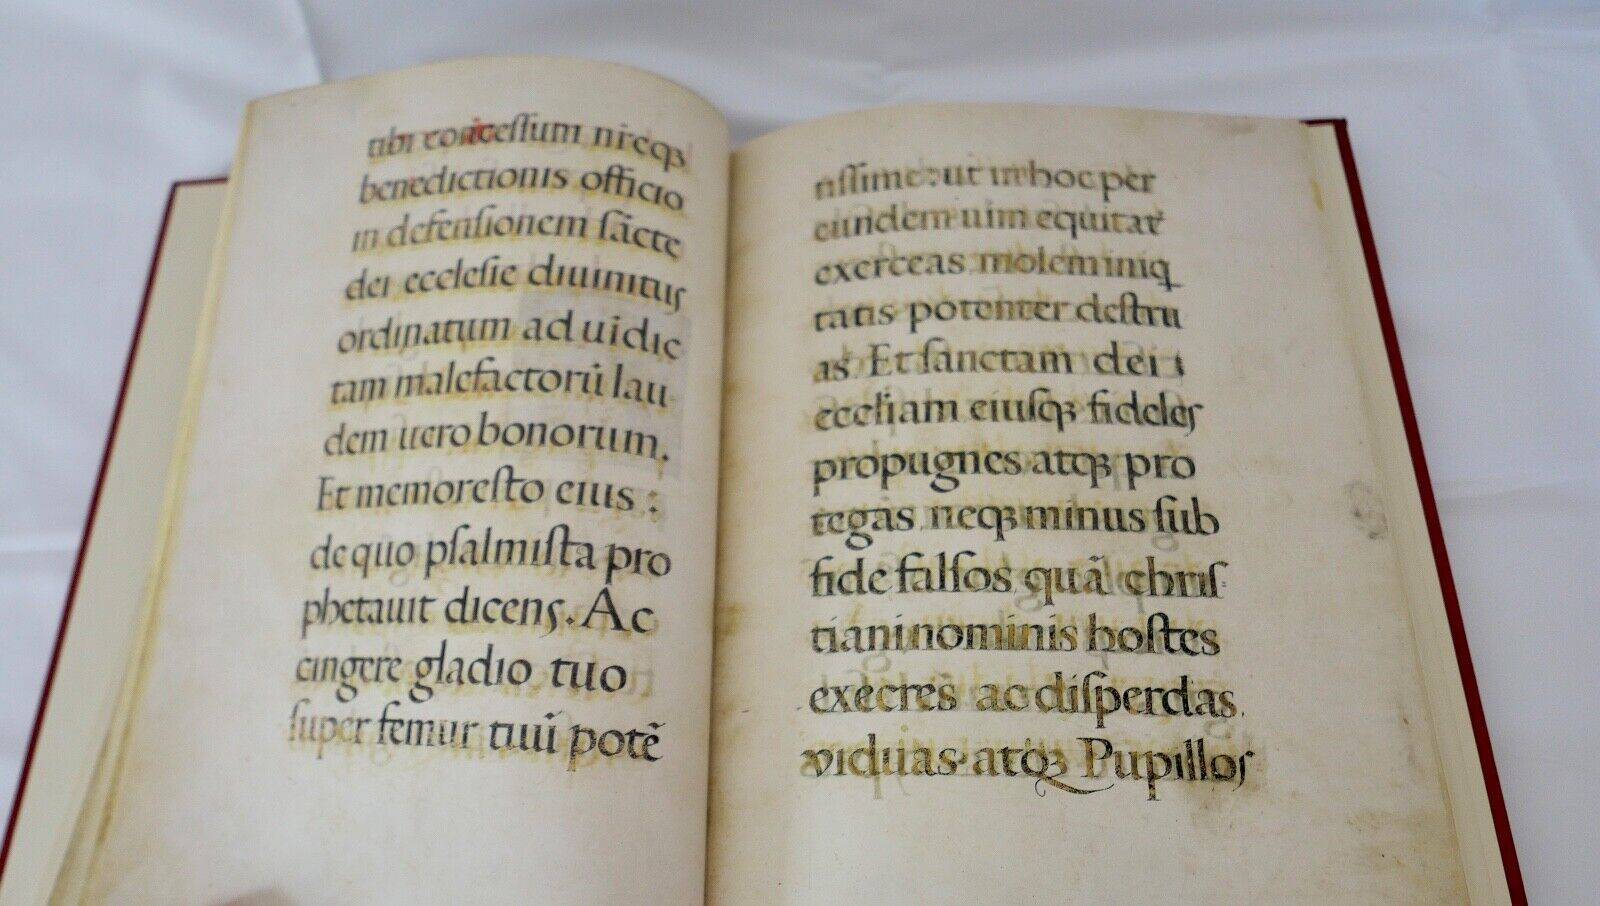 tibi conceſſum nr̄eqꝫ
benedictionis officio
in defenſionem ſācte
dei eccleſie diuinitus
ordinatum ad uidic
tam malefactorū lau
dem uero bonorum.
Et memoreſto eius :
de quo pſalmiſta pro
phetauit dicens. Ac
cingere gladio tuo
ſuper femur tuū potē
tiſſime: ut in hoc per
eundem uim equitat̓
exerceas molem iniq
tatis potenter deſtru
as. Et ſanctam dei
eccliam eiuſqꝫ fideles
propugnes atqꝫ pro
tegas neqꝫ minus ſub
fide falſos quā chriſ
tiani nominis hoſtes
execres ac diſperdas.
viduas atqꝫ Pupillos